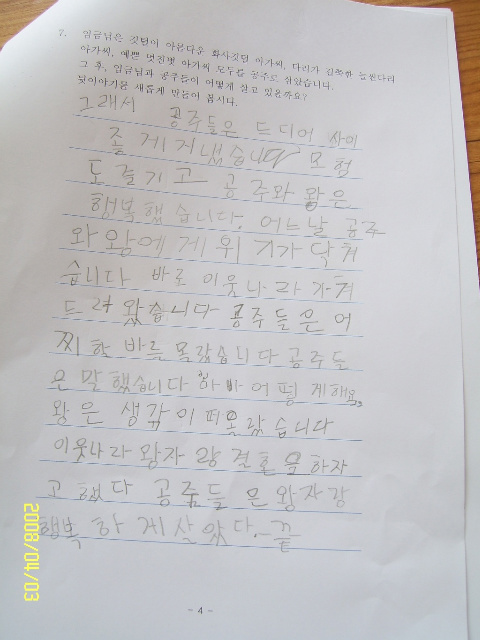 7. 임금님은 깃털이 아름다운 화사깃털 아가씨, 다리가 길쭉한 늘씬다리
아가씨, 예쁜 멋쟁멋 아가씨 모두를 공주로 삼았습니다.
그 후, 임금님과 공주들이 어떻게 살고 있을까요?
뒷이야기를 새롭게 만들어 봅시다.
그래서 공주들은 드디어 사이
좋게 지냈습니다 모험
도 즐기고 공주와 왕은
행복했습니다. 어느날 공주
와 왕에게 위기가 닥쳐
습니다 바로 이웃나라가 쳐
드러 왔습니다 공주들은 어
찌 할 바를 몰랐습니다 공주들
은 말했습니다 어떻게해요
왕은 생각이 떠올랐습니다
이웃나라 왕자랑 결혼을 하자
고 했다 공주들은 왕자랑
행복하게 살았다. -끝
- 4 -
2008/04/03